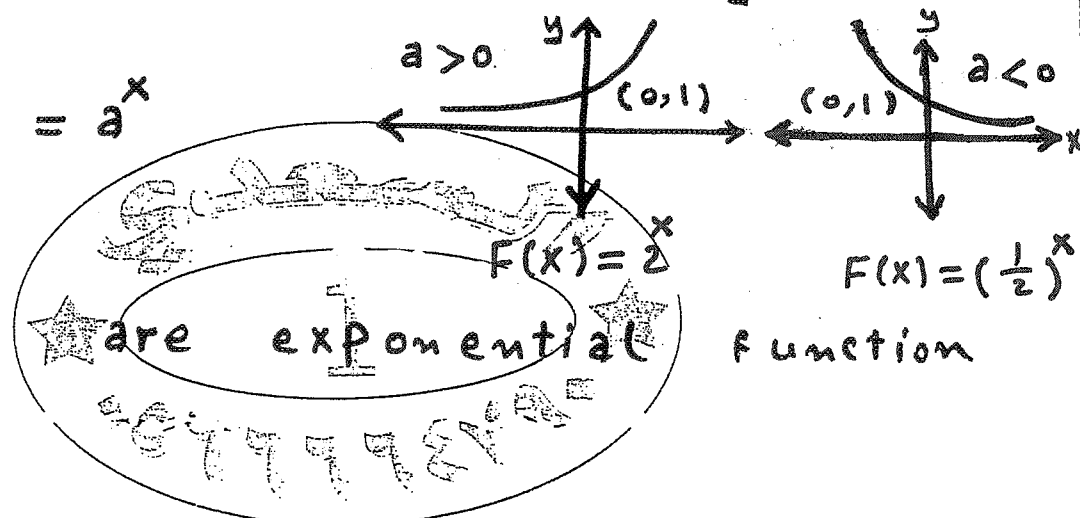 y y
a > 0 a < 0
(0,1) (0,1)
= a^x
x
F(x) = 2^x F(x) = (1/2)^x
are exponential function
1